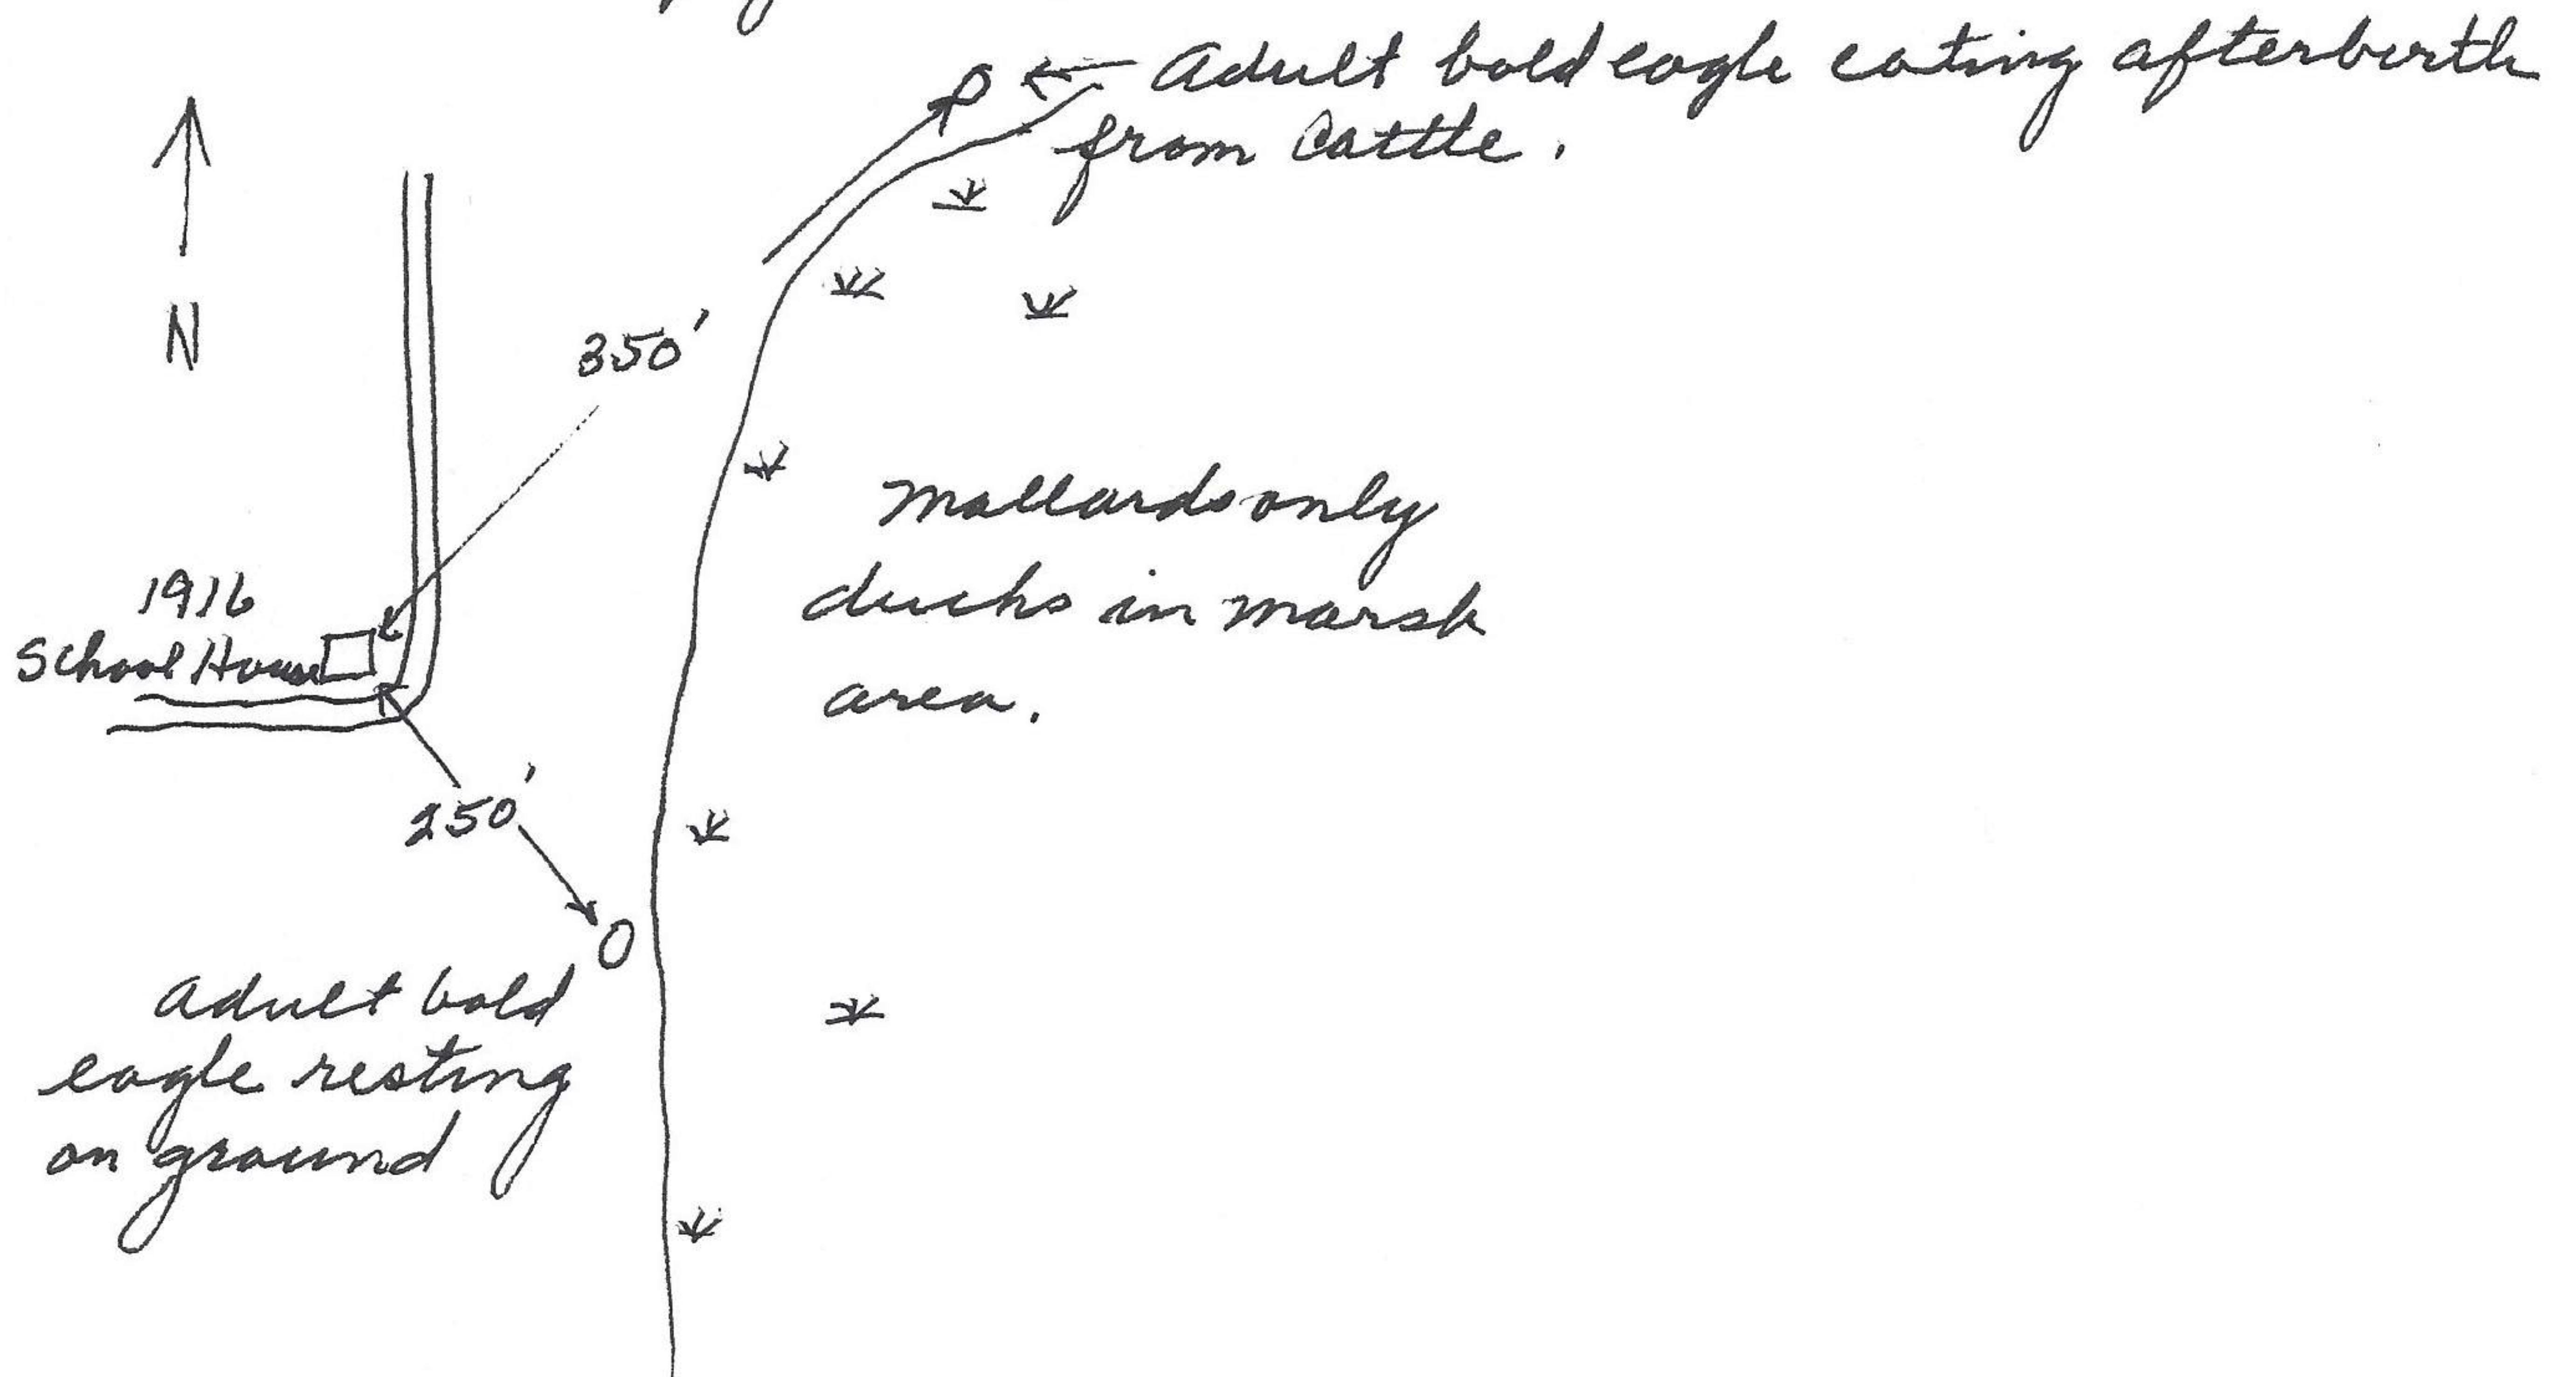 Adult bald eagle eating afterbirth
from Cattle.
N
350'
1916
School House
mallards only
ducks in marsh
area.
250'
adult bald
eagle resting
on ground